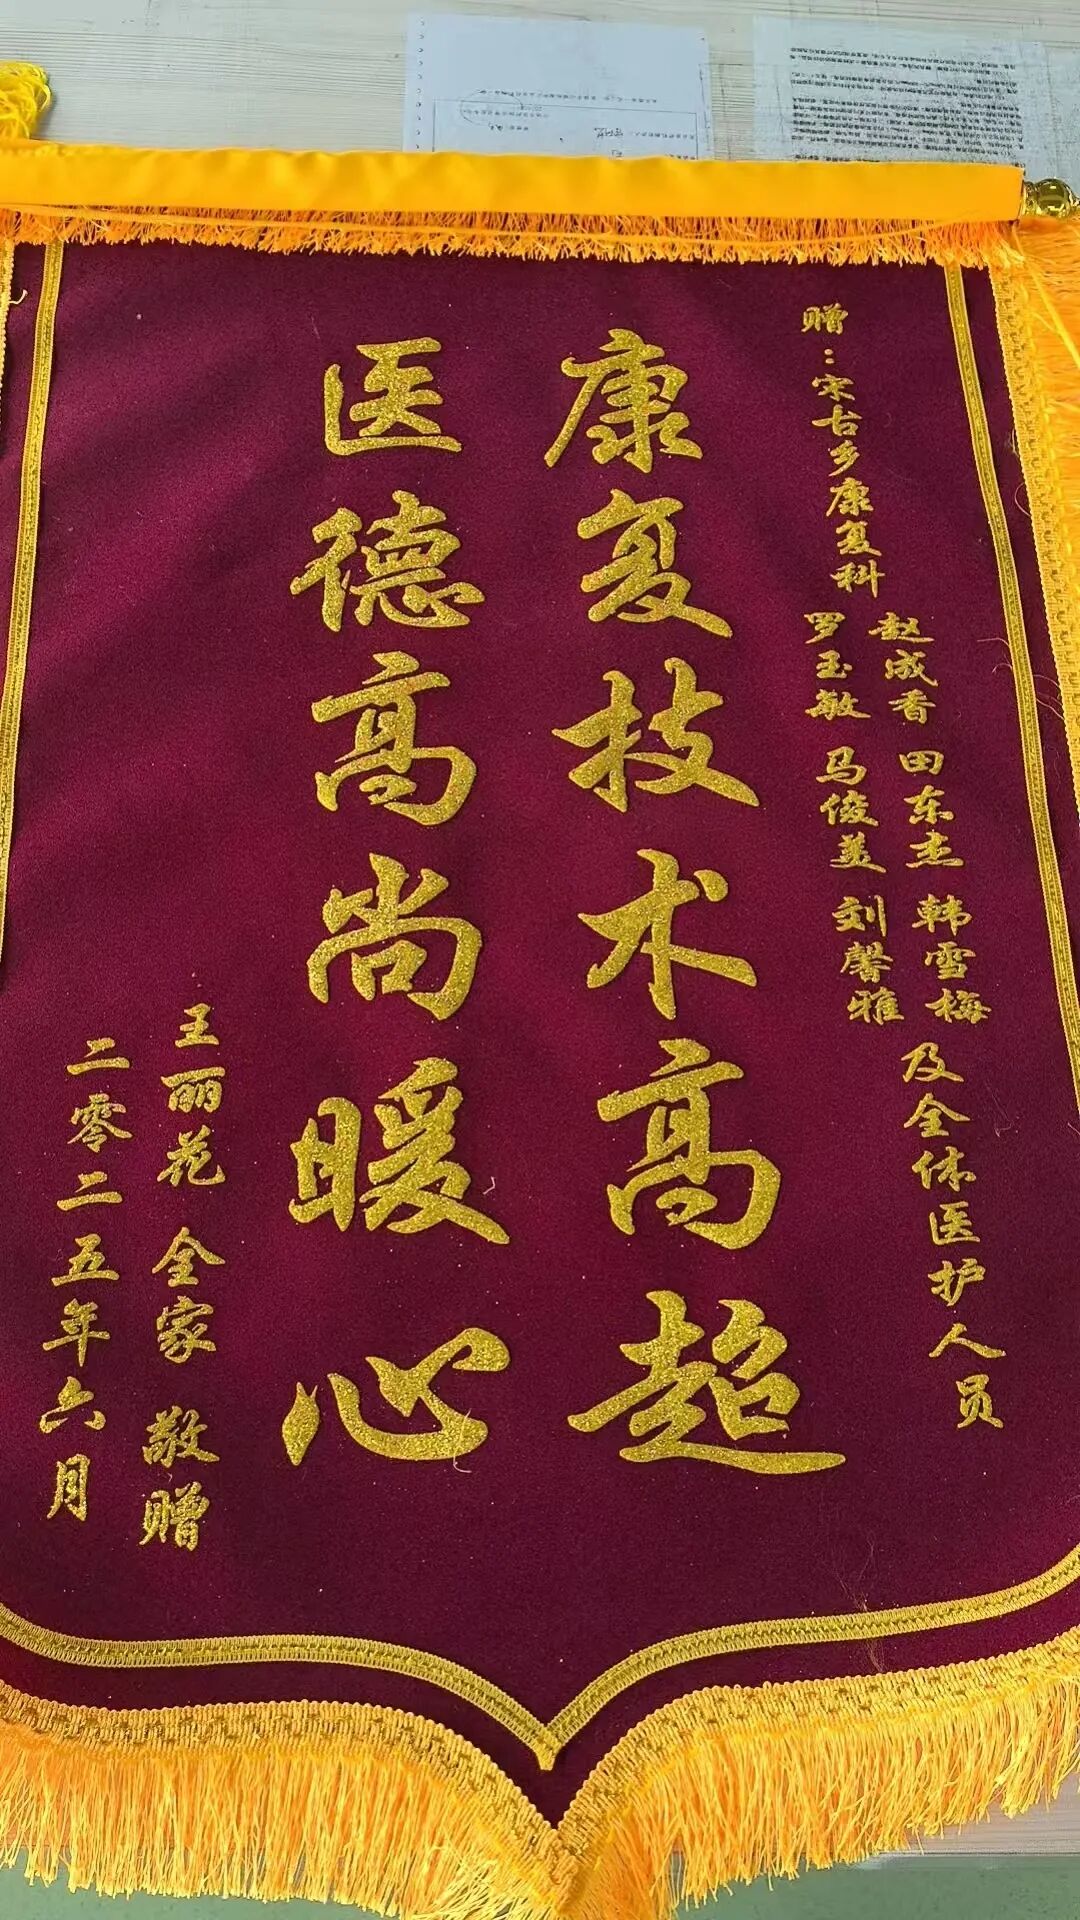 赠：宋古乡康复科
赵成香 田东杰 韩雪梅
罗玉敏 马俊美 刘馨雅
及全体医护人员
康复技术高超
医德高尚暖心
王丽花 全家 敬赠
二零二五年六月